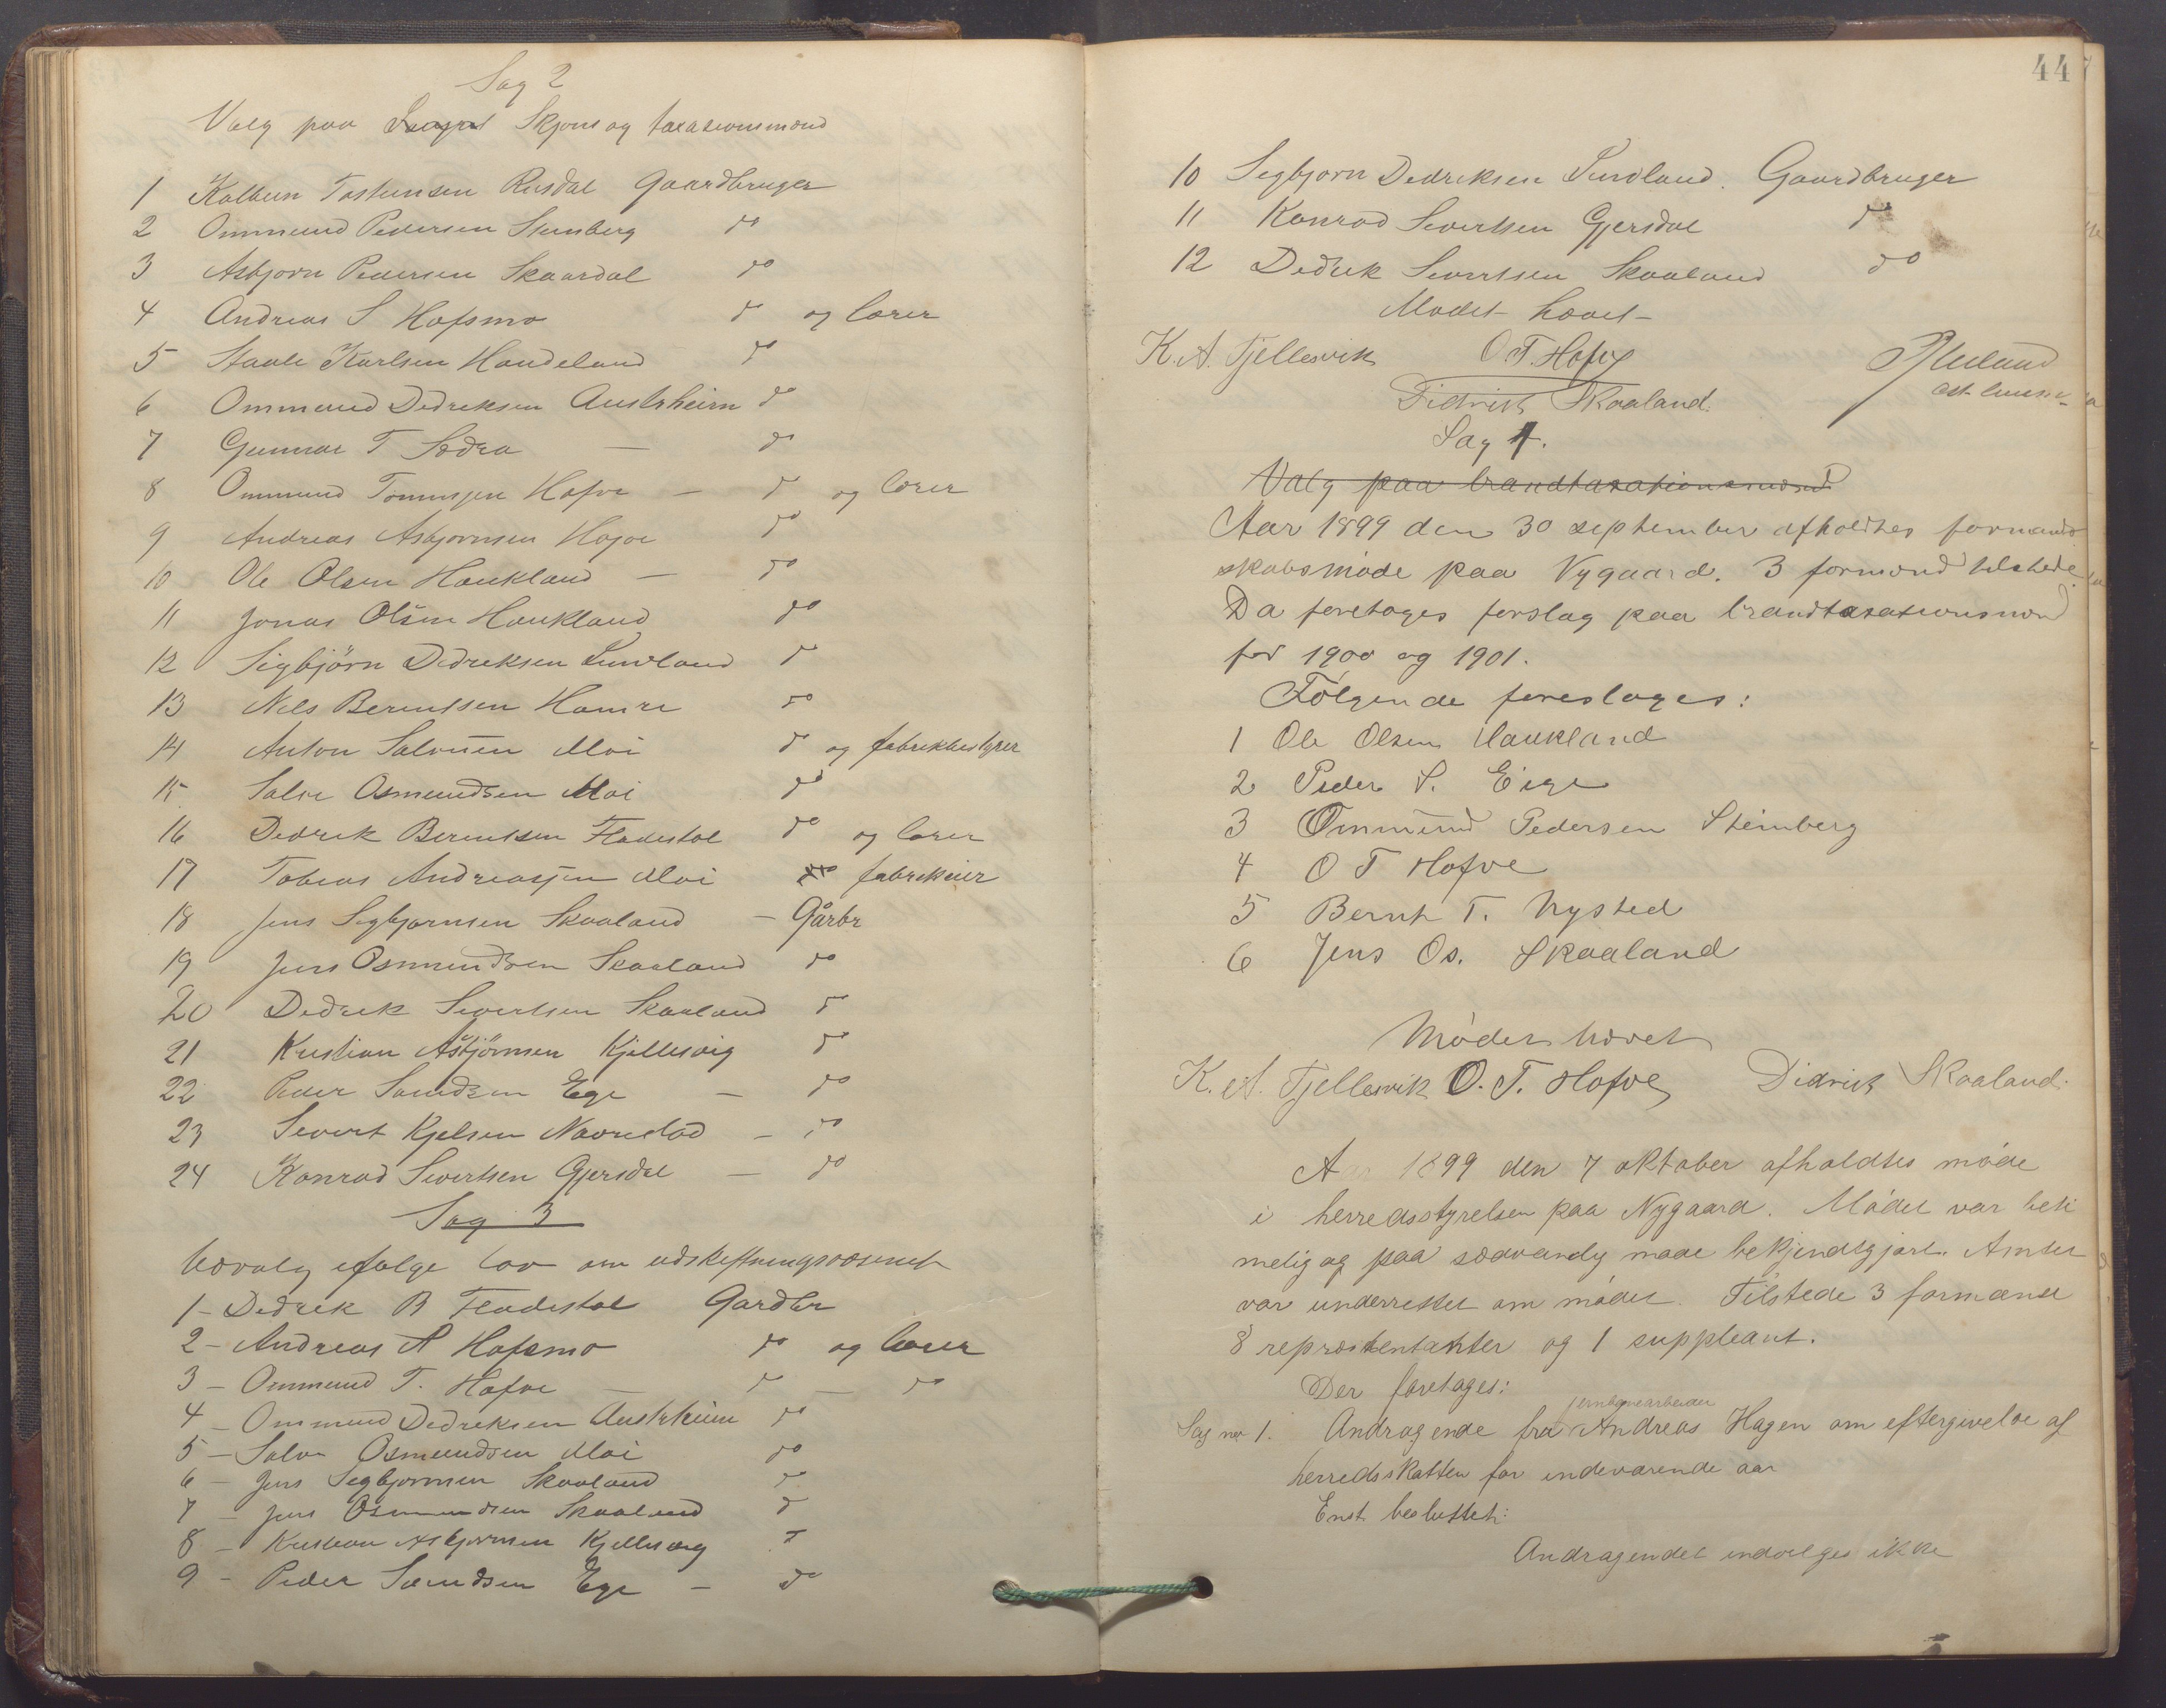 Sag 2
Valg paa Skjøns og taxationsmænd
1 Kolbein Tostensen Rusdal Gaardbruger
2 Ommund Pedersen Stemberg do
3 Asbjørn Pedersen Skaardal do
4 Andreas S Hofsmo do og lærer
5 Staale Karlsen Handeland do
6 Ommund Dedreksen Austrheim do
7 Gunnar T Sædra — do
8 Ommund Tommesen Hofve — do og lærer
9 Andreas Asbjørnsen Hofve do
10 Ole Olsen Haukland — do
11 Jonas Olsen Haukland do
12 Sigbjörn Dedreksen Surdland do
13 Nils Berentsen Hamre do
14 Anton Salvesen Moi do og fabrikbestyrer
15 Salve Osmundsen Moi do
16 Dedrek Berentsen Fladestøl do og lærer
17 Tobias Andreassen Moi do fabrikeier
18 Jens Segbjørnsen Skaaland — Gårbr
19 Jens Osmundsen Skaaland do
20 Dedrek Severtsen Skaaland do
21 Kristian Asbjörnsen Kjellesvig do
22 Peder Samdsen Ege — do
23 Severt Kjelsen Navrestad — do
24 Konrad Severtsen Gjersdal — do
Sag 3
Udvalg ifølge lov om udskiftningsvæsenet
1 – Dedrek B Fladestøl Gardbr
2 – Andreas S Hofsmo do og lærer
3 – Ommund T. Hofve — do — do
4 – Ommund Dedreksen Austrheim do
5 – Salve Osmundsen Moi do
6 – Jens Segbjørnsen Skaaland do
7 – Jens Osmundsen Skaaland do
8 – Kristian Asbjørnsen Kjellesvig do
9 – Peder Samdsen Ege — do
44
10 Segbjørn Dedreksen Surdland. Gaardbruger
11 Konrad Severtsen Gjersdal do
12 Dedrek Severtsen Skaaland do
Mødet hævet
K. A. Tjellesvik O T. Hofve
Didrick Skaaland.
Sag 4.
Valg paa brandtaxationsmænd
Aar 1899 den 30 september afholdtes formand
skabsmøde paa Nygaard. 3 formænd tilstede.
Da foretoges forslag paa brandtaxationsmænd
for 1900 og 1901.
Følgende foresloges:
1 Ole Olsen Haukland
2 Peder S. Eige
3 Ommund Pedersen Steinberg
4 O T Hofve
5 Bernt T. Nysted
6 Jens Os. Skaaland
Mødet hævet
K. A. Tjellesvik O. T. Hofve Didrick Skaaland.
Aar 1899 den 7 oktober afholdtes møde
i herredsstyrelsen paa Nygaard. Mødet var beti
melig og paa sædvanlig maade bekjendtgjort. Amtet
var underrettet om mødet. Tilstede 3 formænd
8 repræsentanter og 1 suppleant.
Der foretoges:
jernbanearbeider
Sag no 1. Andragende fra Andreas Hagen om eftergivelse af
herredsskatten for indeværende aar
Enst. besluttet:
Andragendet indvilges ikke